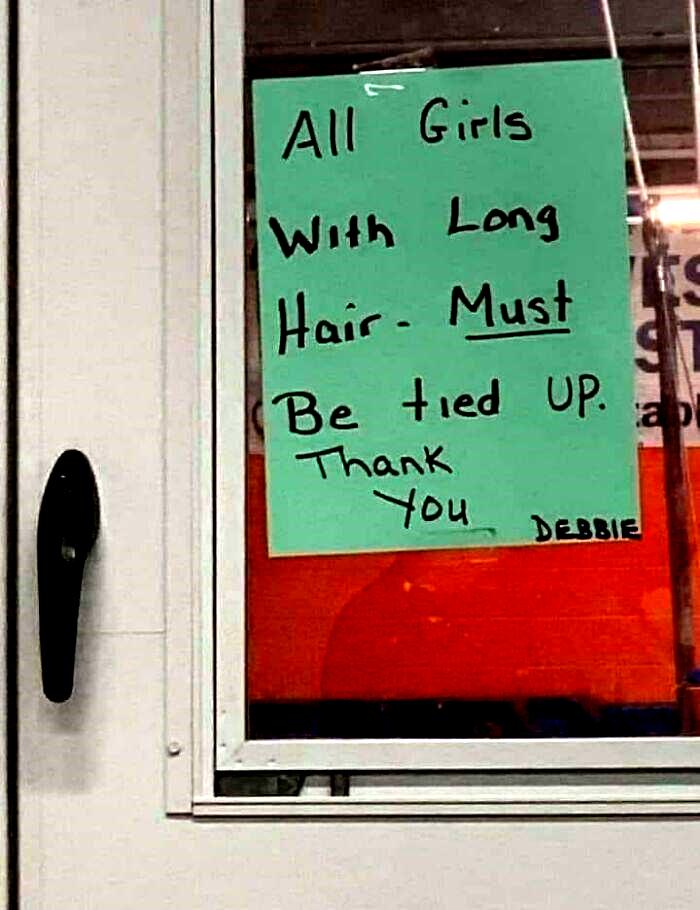 All Girls
With Long
Hair - Must
Be tied UP.
Thank
You
DEBBIE